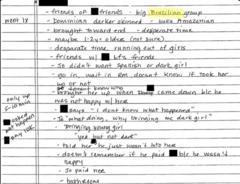 - friends of friends - big Brazilian group
- Dominican darker skinned - Amazonian
- brought toward end - desperate time
- maybe 1-2 yr older (not sure)
- desperate time, running out of girls
- friends w/ bf's friends
- Jo didn't want Spanish or dark girl
- go in, wait in Rm doesn't know if took her
up or not
- brought her up when came down b/c he
was not happy w/ her
- says "I dont know what happened"
- Jo "what doing, why bringing me dark girl"
- Bringing young girl
"yes but not dark"
- told her he just wasn't into her
- doesn't remember if he paid b/c he wasn't
happy
- Jo paid
only up
5-10 min
not happen